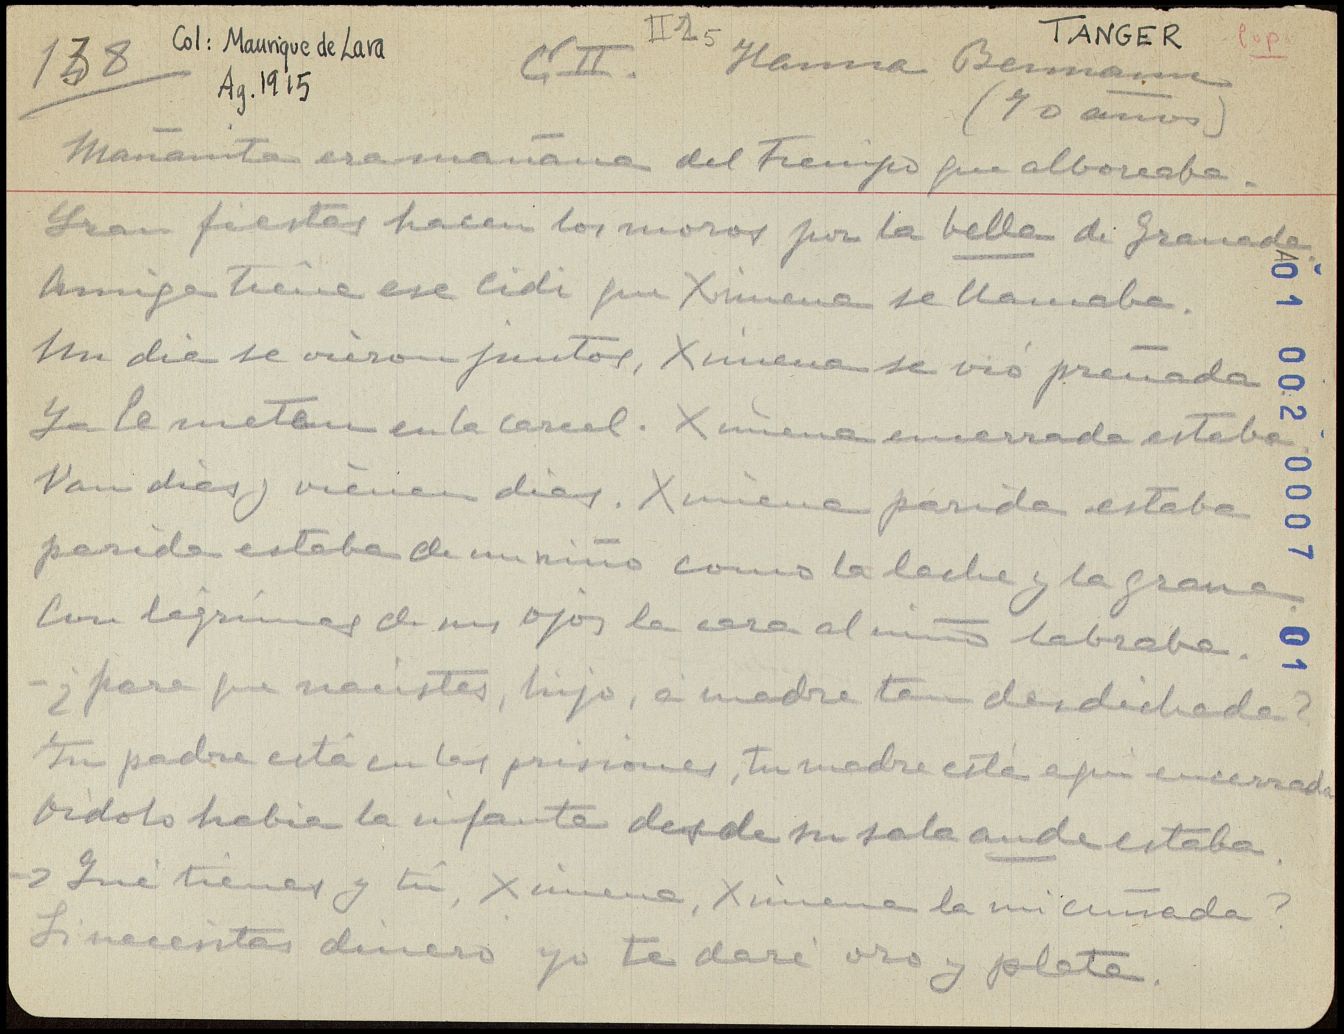 138
Col: Maurique de Lara
Ag. 1915
C II.
II 15
TANGER
cop.
Hanna Bennaim
(70 años)
Mañanita era mañana del tiempo que alboreaba.
Gran fiestas hacen los moros por la bella de Granada.
Amiga tiene ese Cidi que Ximena se llamaba.
Un dia se vieron juntos, Ximena se vió preñada
Ya le metan en la carcel. Ximena encerrada estaba
Van dias y vienen dias. Ximena parida estaba
parida estaba de un niño como la leche y la grana.
Con lágrimas de sus ojos la cara al niño labraba.
-¿para que nacistes, hijo, a madre tan desdichada?
Tu padre está en las prisiones, tu madre está aqui encerrada
Oidolo habia la infanta desde su sala ande estaba.
-¿Qué tienes y tú, Ximena, Ximena la mi cuñada?
Si necesitas dinero yo te daré oro y plata.
A 01 002 0007 01